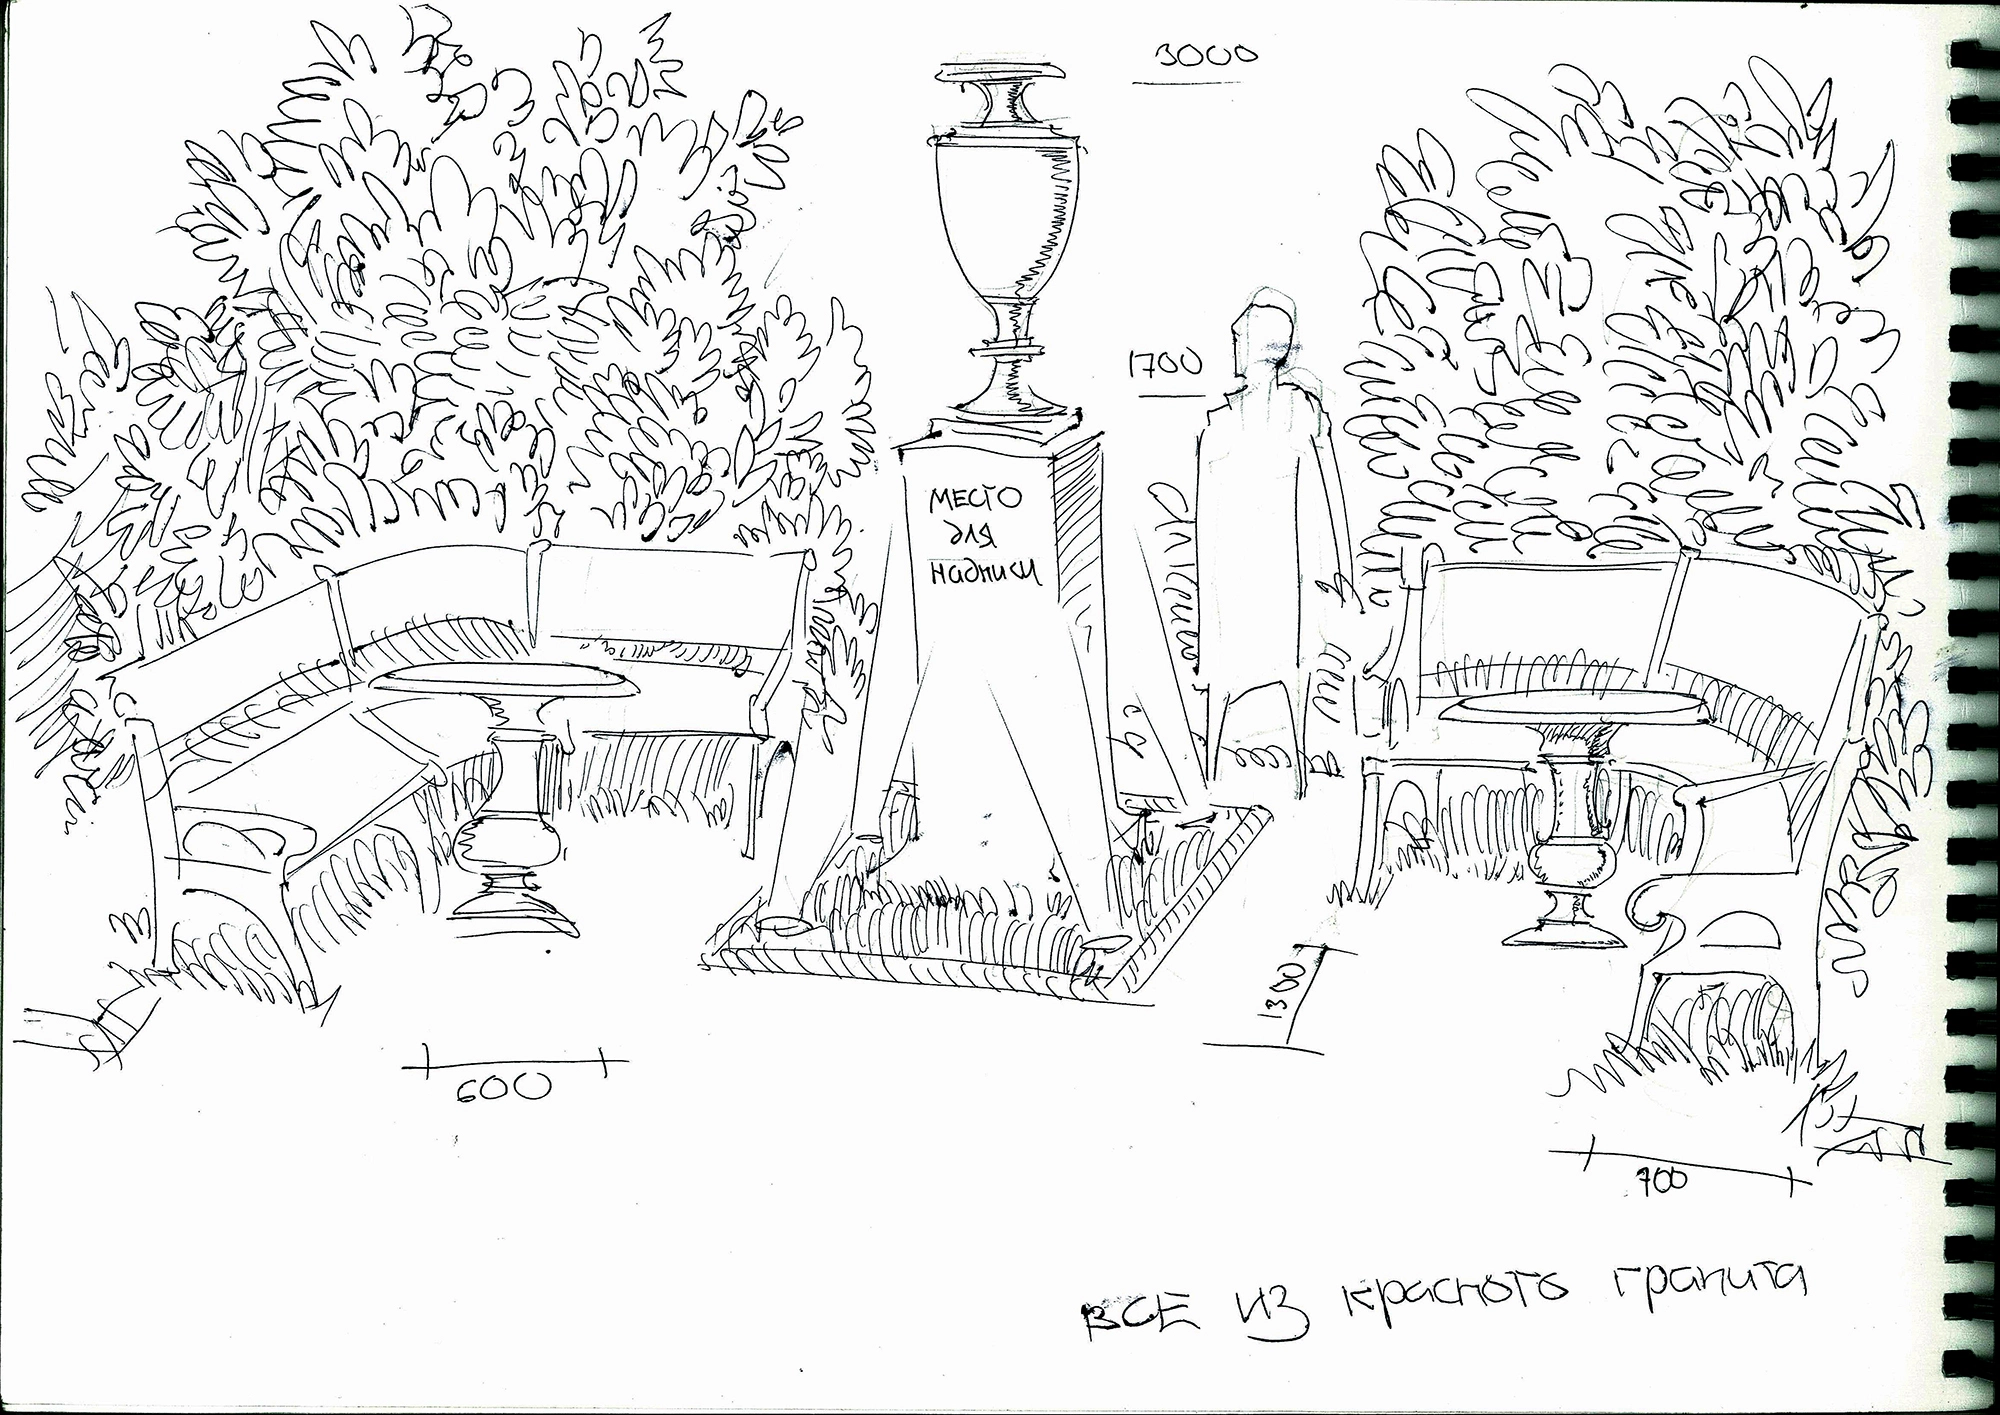 3000
1700
МЕСТО
для
надписи
1300
600
700
ВСЕ ИЗ красного гранита